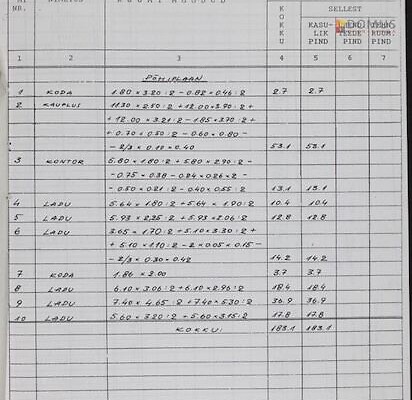 NR. NIMETUS RUUMI MÕÕDUD KOKKU SELLEST
DOMUS
KASU-
LIK
PIND
PIND
RUUM.
PIND
1 2 3 4 5 6 7
PÕHIPLAAN
1 KODA 1.80 × 3.20 : 2 - 0.82 × 0.46 : 2 2.7 2.7
2 KAUPLUS 11.30 × 2.50 : 2 + 12.00 × 3.70 : 2 +
+ 12.00 × 3.21 : 2 - 1.85 × 3.70 : 2 +
+ 0.70 × 0.50 : 2 - 0.60 × 0.80 -
- 2/3 × 0.10 × 0.40 53.1 53.1
3 KONTOR 5.80 × 1.80 : 2 + 5.80 × 2.90 : 2 -
- 0.75 × 0.38 - 0.94 × 0.26 × 2 -
- 0.50 × 0.21 : 2 - 0.40 × 0.55 : 2 13.1 13.1
4 LADU 5.64 × 1.80 : 2 + 5.64 × 1.90 : 2 10.4 10.4
5 LADU 5.93 × 2.25 : 2 + 5.93 × 2.06 : 2 12.8 12.8
6 LADU 3.65 × 1.70 : 2 + 5.10 × 3.30 : 2 +
+ 5.10 × 1.10 : 2 - 2 × 0.05 × 0.15 -
- 2/3 × 0.30 × 0.42 14.2 14.2
7 KODA 1.86 × 2.00 3.7 3.7
8 LADU 6.10 × 3.06 : 2 + 6.10 × 2.96 : 2 18.4 18.4
9 LADU 7.40 × 4.65 : 2 + 7.40 × 5.30 : 2 36.9 36.9
10 LADU 5.60 × 3.20 : 2 + 5.60 × 3.15 : 2 17.8 17.8
KOKKU: 183.1 183.1